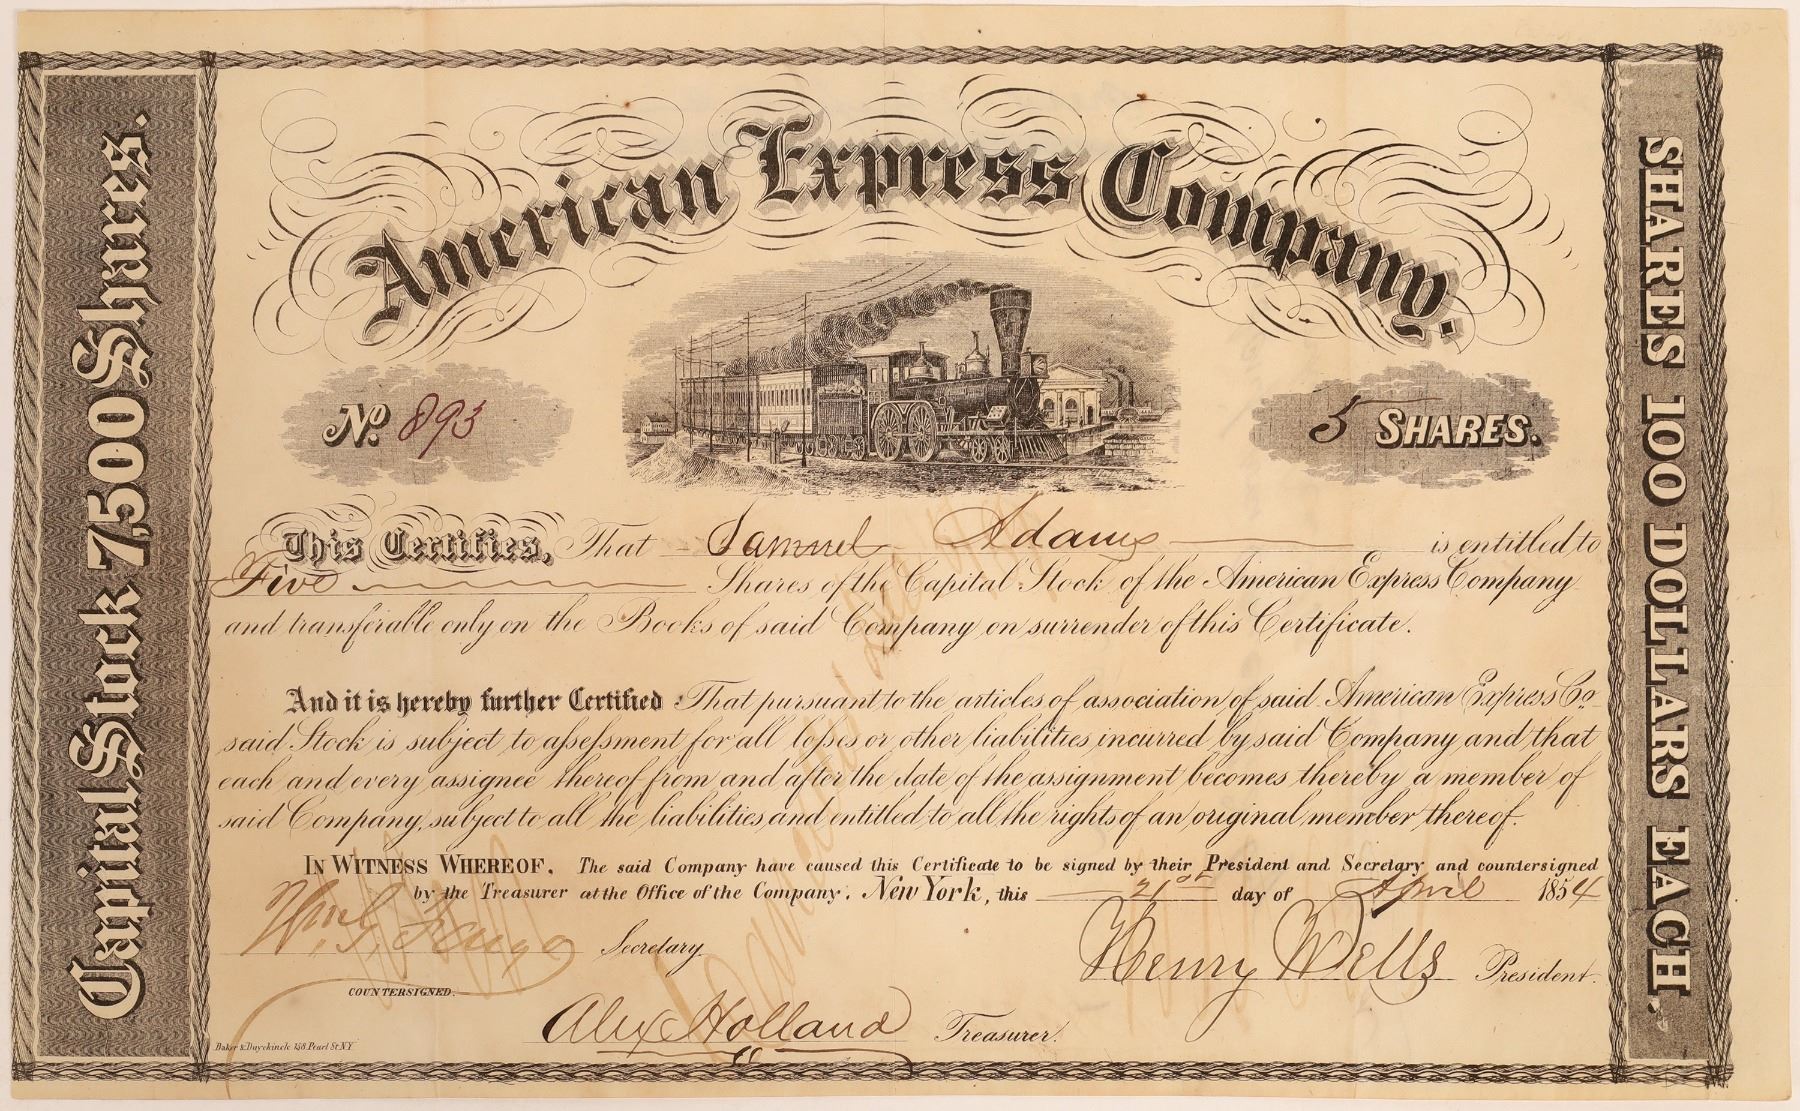 American Express Company.
Capital Stock 7,500 Shares.
No. 893
5 SHARES.
SHARES 100 DOLLARS EACH.
This Certifies, That Samuel Adams is entitled to
Five Shares of the Capital Stock of the American Express Company
and transferable only on the Books of said Company on surrender of this Certificate.
And it is hereby further Certified : That pursuant to the articles of association of said American Express Co
said Stock is subject to assessment for all losses or other liabilities incurred by said Company and that
each and every assignee thereof from and after the date of the assignment becomes thereby a member of
said Company, subject to all the liabilities and entitled to all the rights of an original member thereof.
IN WITNESS WHEREOF, The said Company have caused this Certificate to be signed by their President and Secretary and countersigned
by the Treasurer at the Office of the Company. NEW YORK, this 21st day of April 1854
Wm. G. Fargo Secretary
Henry Wells President.
COUNTERSIGNED.
Alex Holland Treasurer.
Baker & Duyckinck 158 Pearl St. N.Y.